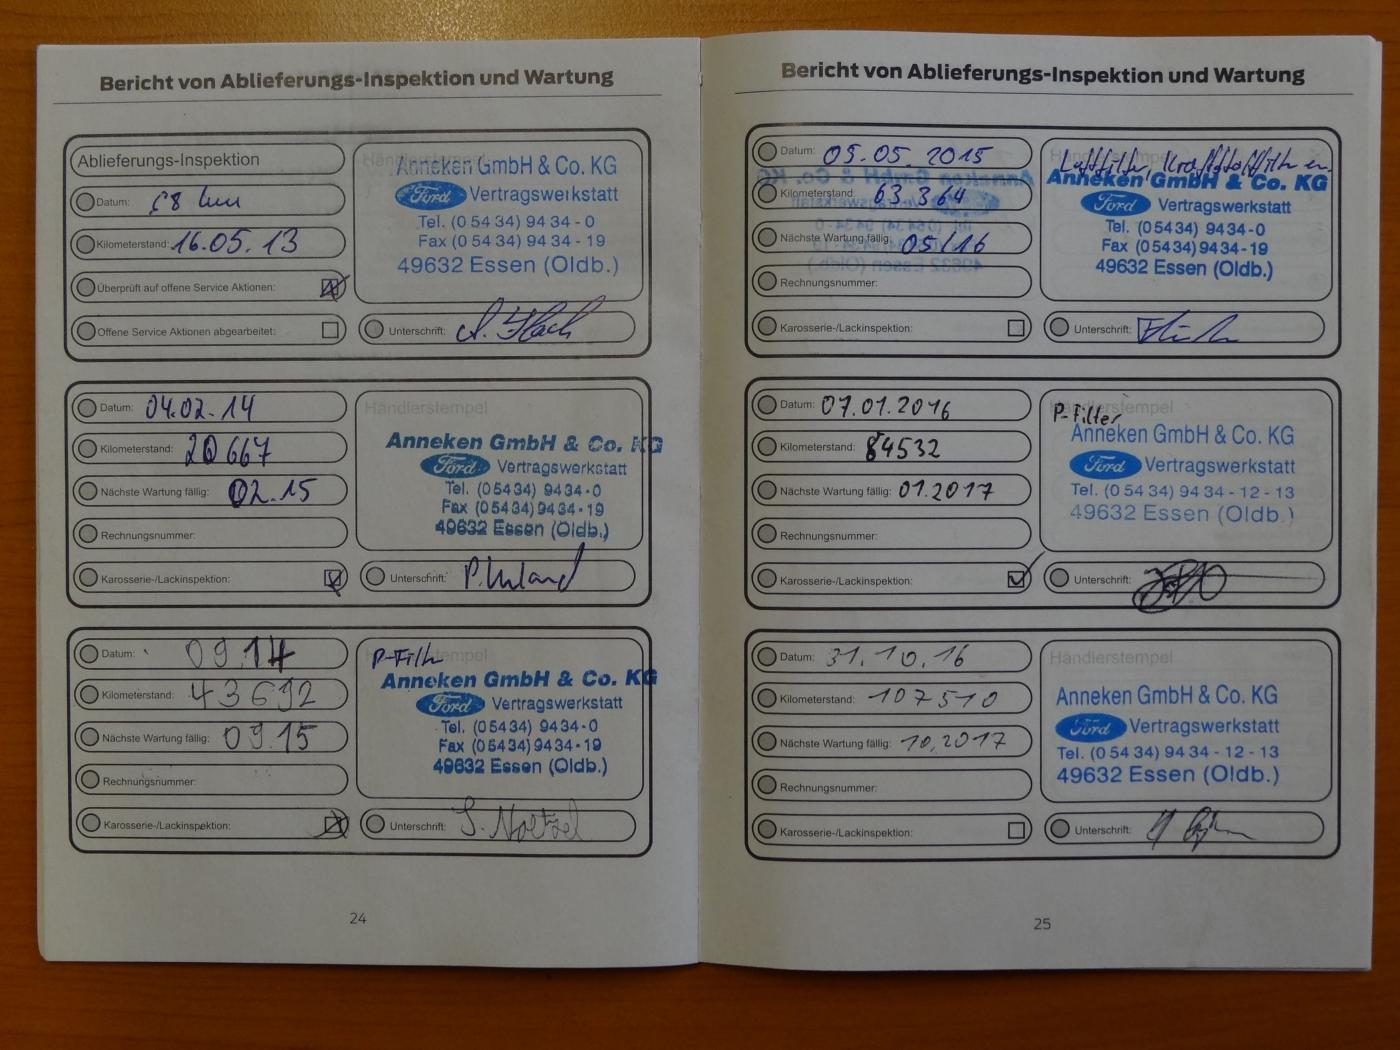 Bericht von Ablieferungs-Inspektion und Wartung
Ablieferungs-Inspektion
Datum: 58 km
Kilometerstand: 16.05.13
Überprüft auf offene Service Aktionen:
Offene Service Aktionen abgearbeitet:
Händlerstempel
Anneken GmbH & Co. KG
Ford Vertragswerkstatt
Tel. (0 54 34) 94 34 - 0
Fax (0 54 34) 94 34 - 19
49632 Essen (Oldb.)
Unterschrift:
Datum: 04.02.14
Kilometerstand: 20667
Nächste Wartung fällig: 02.15
Rechnungsnummer:
Karosserie-/Lackinspektion:
Händlerstempel
Anneken GmbH & Co. KG
Ford Vertragswerkstatt
Tel. (0 54 34) 94 34 - 0
Fax (0 54 34) 94 34 - 19
49632 Essen (Oldb.)
Unterschrift:
Datum: 09.14
Kilometerstand: 43692
Nächste Wartung fällig: 09.15
Rechnungsnummer:
Karosserie-/Lackinspektion:
P-Filter
Anneken GmbH & Co. KG
Ford Vertragswerkstatt
Tel. (0 54 34) 94 34 - 0
Fax (0 54 34) 94 34 - 19
49632 Essen (Oldb.)
Unterschrift: S. Noetzel
24
Bericht von Ablieferungs-Inspektion und Wartung
Datum: 05.05.2015
Kilometerstand: 63.364
Nächste Wartung fällig: 05/16
Rechnungsnummer:
Karosserie-/Lackinspektion:
Händlerstempel
Luftfilter, Kraftstofffilter
Anneken GmbH & Co. KG
Ford Vertragswerkstatt
Tel. (0 54 34) 94 34 - 0
Fax (0 54 34) 94 34 - 19
49632 Essen (Oldb.)
Unterschrift:
Datum: 07.01.2016
Kilometerstand: 84532
Nächste Wartung fällig: 01.2017
Rechnungsnummer:
Karosserie-/Lackinspektion:
Händlerstempel
P-Filter
Anneken GmbH & Co. KG
Ford Vertragswerkstatt
Tel. (0 54 34) 94 34 - 12 - 13
49632 Essen (Oldb.)
Unterschrift:
Datum: 31.10.16
Kilometerstand: 107510
Nächste Wartung fällig: 10.2017
Rechnungsnummer:
Karosserie-/Lackinspektion:
Händlerstempel
Anneken GmbH & Co. KG
Ford Vertragswerkstatt
Tel. (0 54 34) 94 34 - 12 - 13
49632 Essen (Oldb.)
Unterschrift:
25